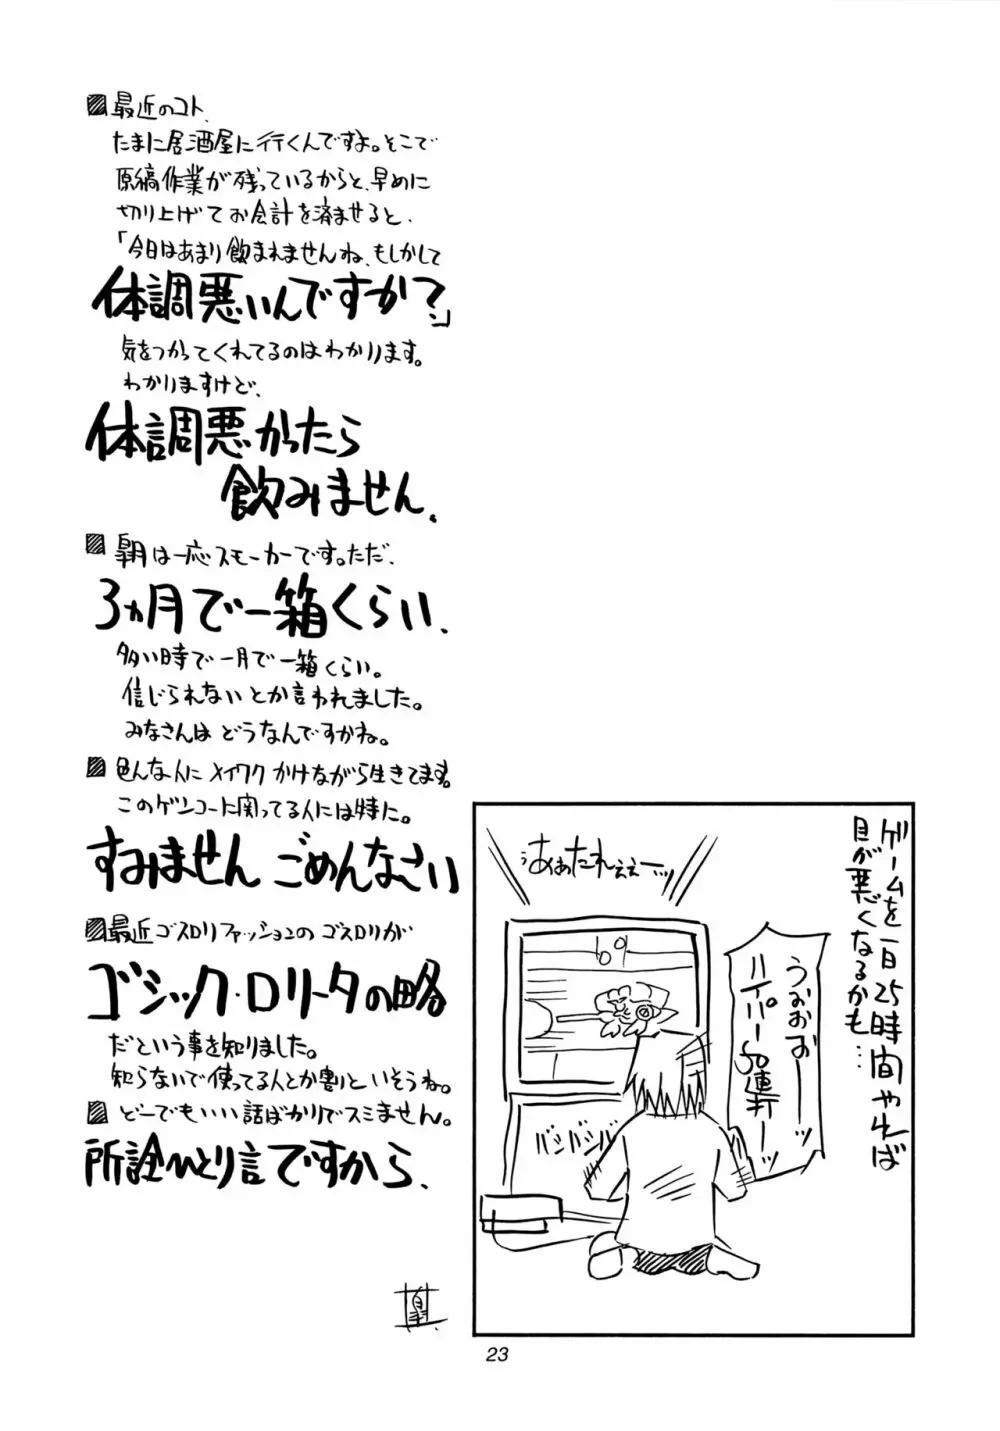 最近のコト.
たまに居酒屋に行くんですよ。そこで
原稿作業が残っているからと、早めに
切り上げてお会計を済ませると、
「今日はあまり飲まれませんね、もしかして
体調悪いんですか?」
気をつかってくれてるのはわかります。
わかりますけど、
体調悪かったら
飲みません.
は一応スモーカーです。ただ、
3ヵ月で一箱くらい.
多い時で一月で一箱くらい。
信じられないとか言われました。
みなさんはどうなんですかね。
色んな人にメイワクかけながら生きてます。
このゲンコーに関ってる人には特に。
すみません ごめんなさい
最近ゴスロリファッションのゴスロリが
ゴシック・ロリータの略
だという事を知りました。
知らないで使ってる人とか割といそうね。
どーでもいい話ばかりでスミません。
所詮ひとり言ですから.
ゲームを一日25時間やれば
目が悪くなるかも…
うぉおおーーッ
ハイパー50連打ーッ
うあぁたれぇぇーッ
バンバンバン
23